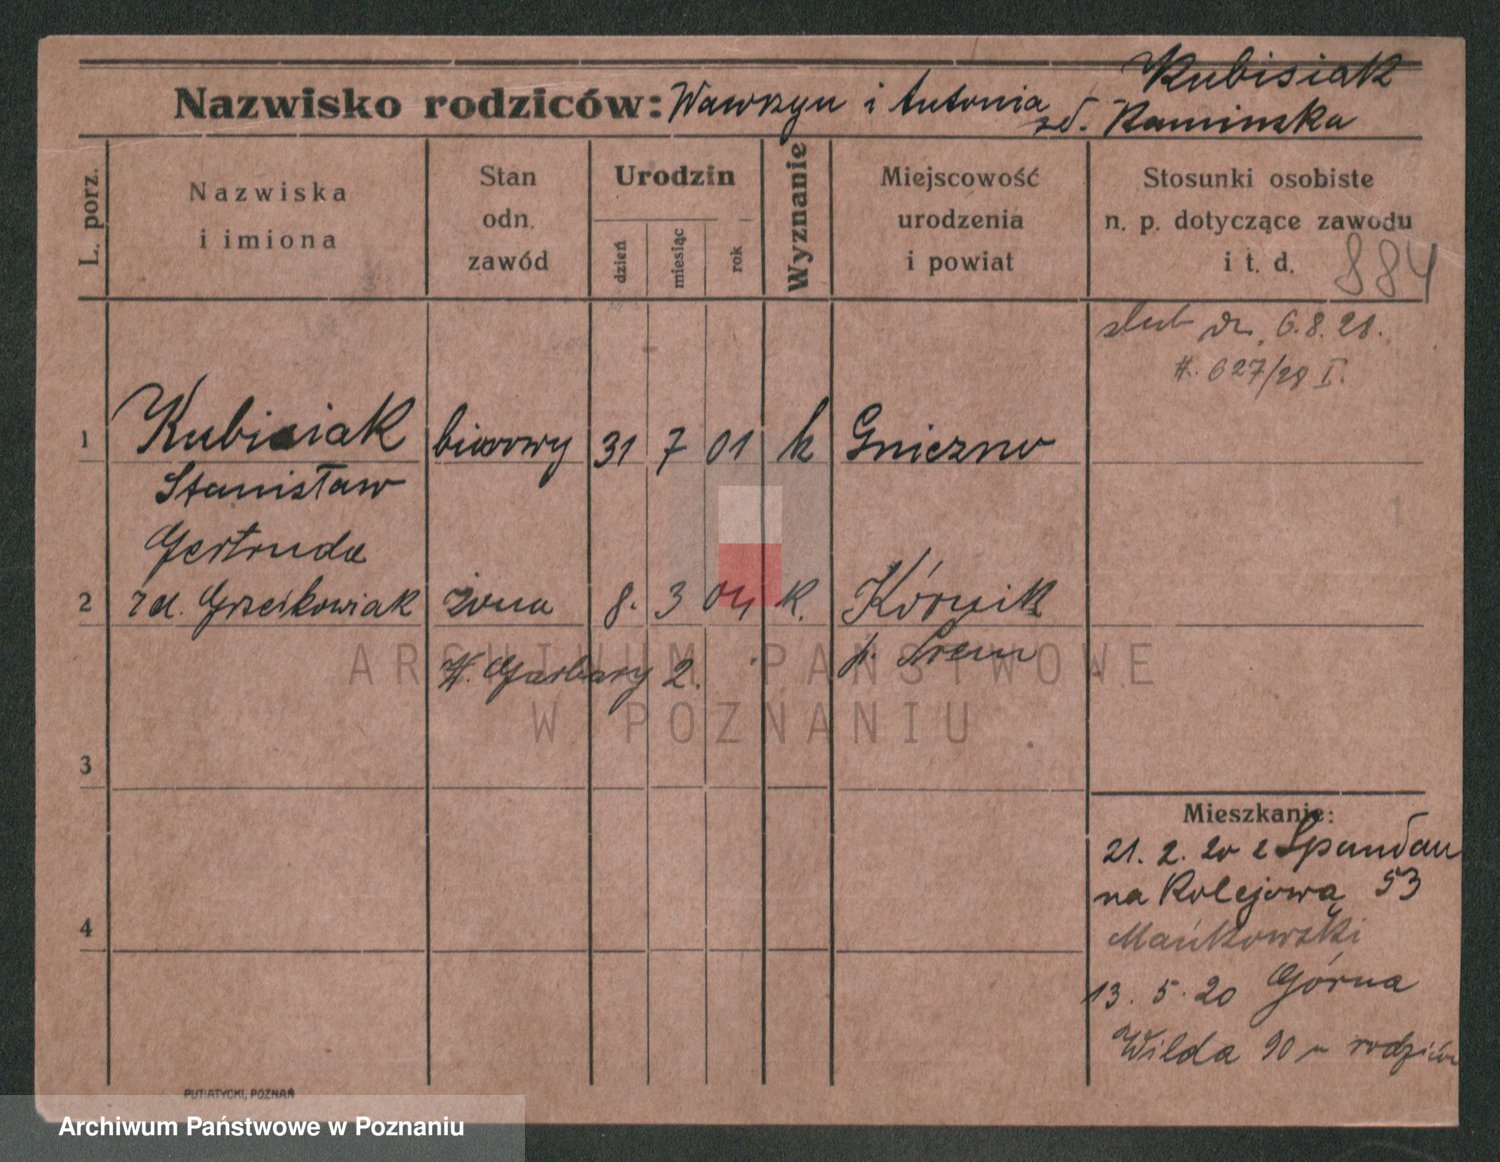 Kubisiak
Nazwisko rodziców: Wawrzyn i Antonia
zd. Kaminska
L. porz.
Nazwiska
i imiona
Stan
odn.
zawód
Urodzin
dzień
miesiąc
rok
Wyznanie
Miejscowość
urodzenia
i powiat
Stosunki osobiste
n. p. dotyczące zawodu
i t. d.
884
ślub dn. 6.8.28.
627/28 I.
1 Kubisiak biurowy 31 7 01 k Gniezno
Stanisław
Gertruda
2 zd. Grzeskowiak żona 8. 3 04 k. Kórnik
W. Garbary 2. p. Srem
3
4
Mieszkanie:
21. 2. 20 z Spandau
na Kolejową 53
Mańkowski
13. 5. 20 Górna
Wilda 90 u rodziców
1
PUTIATYCKI, POZNAŃ
ARCHIWUM PAŃSTWOWE
W POZNANIU
Archiwum Państwowe w Poznaniu